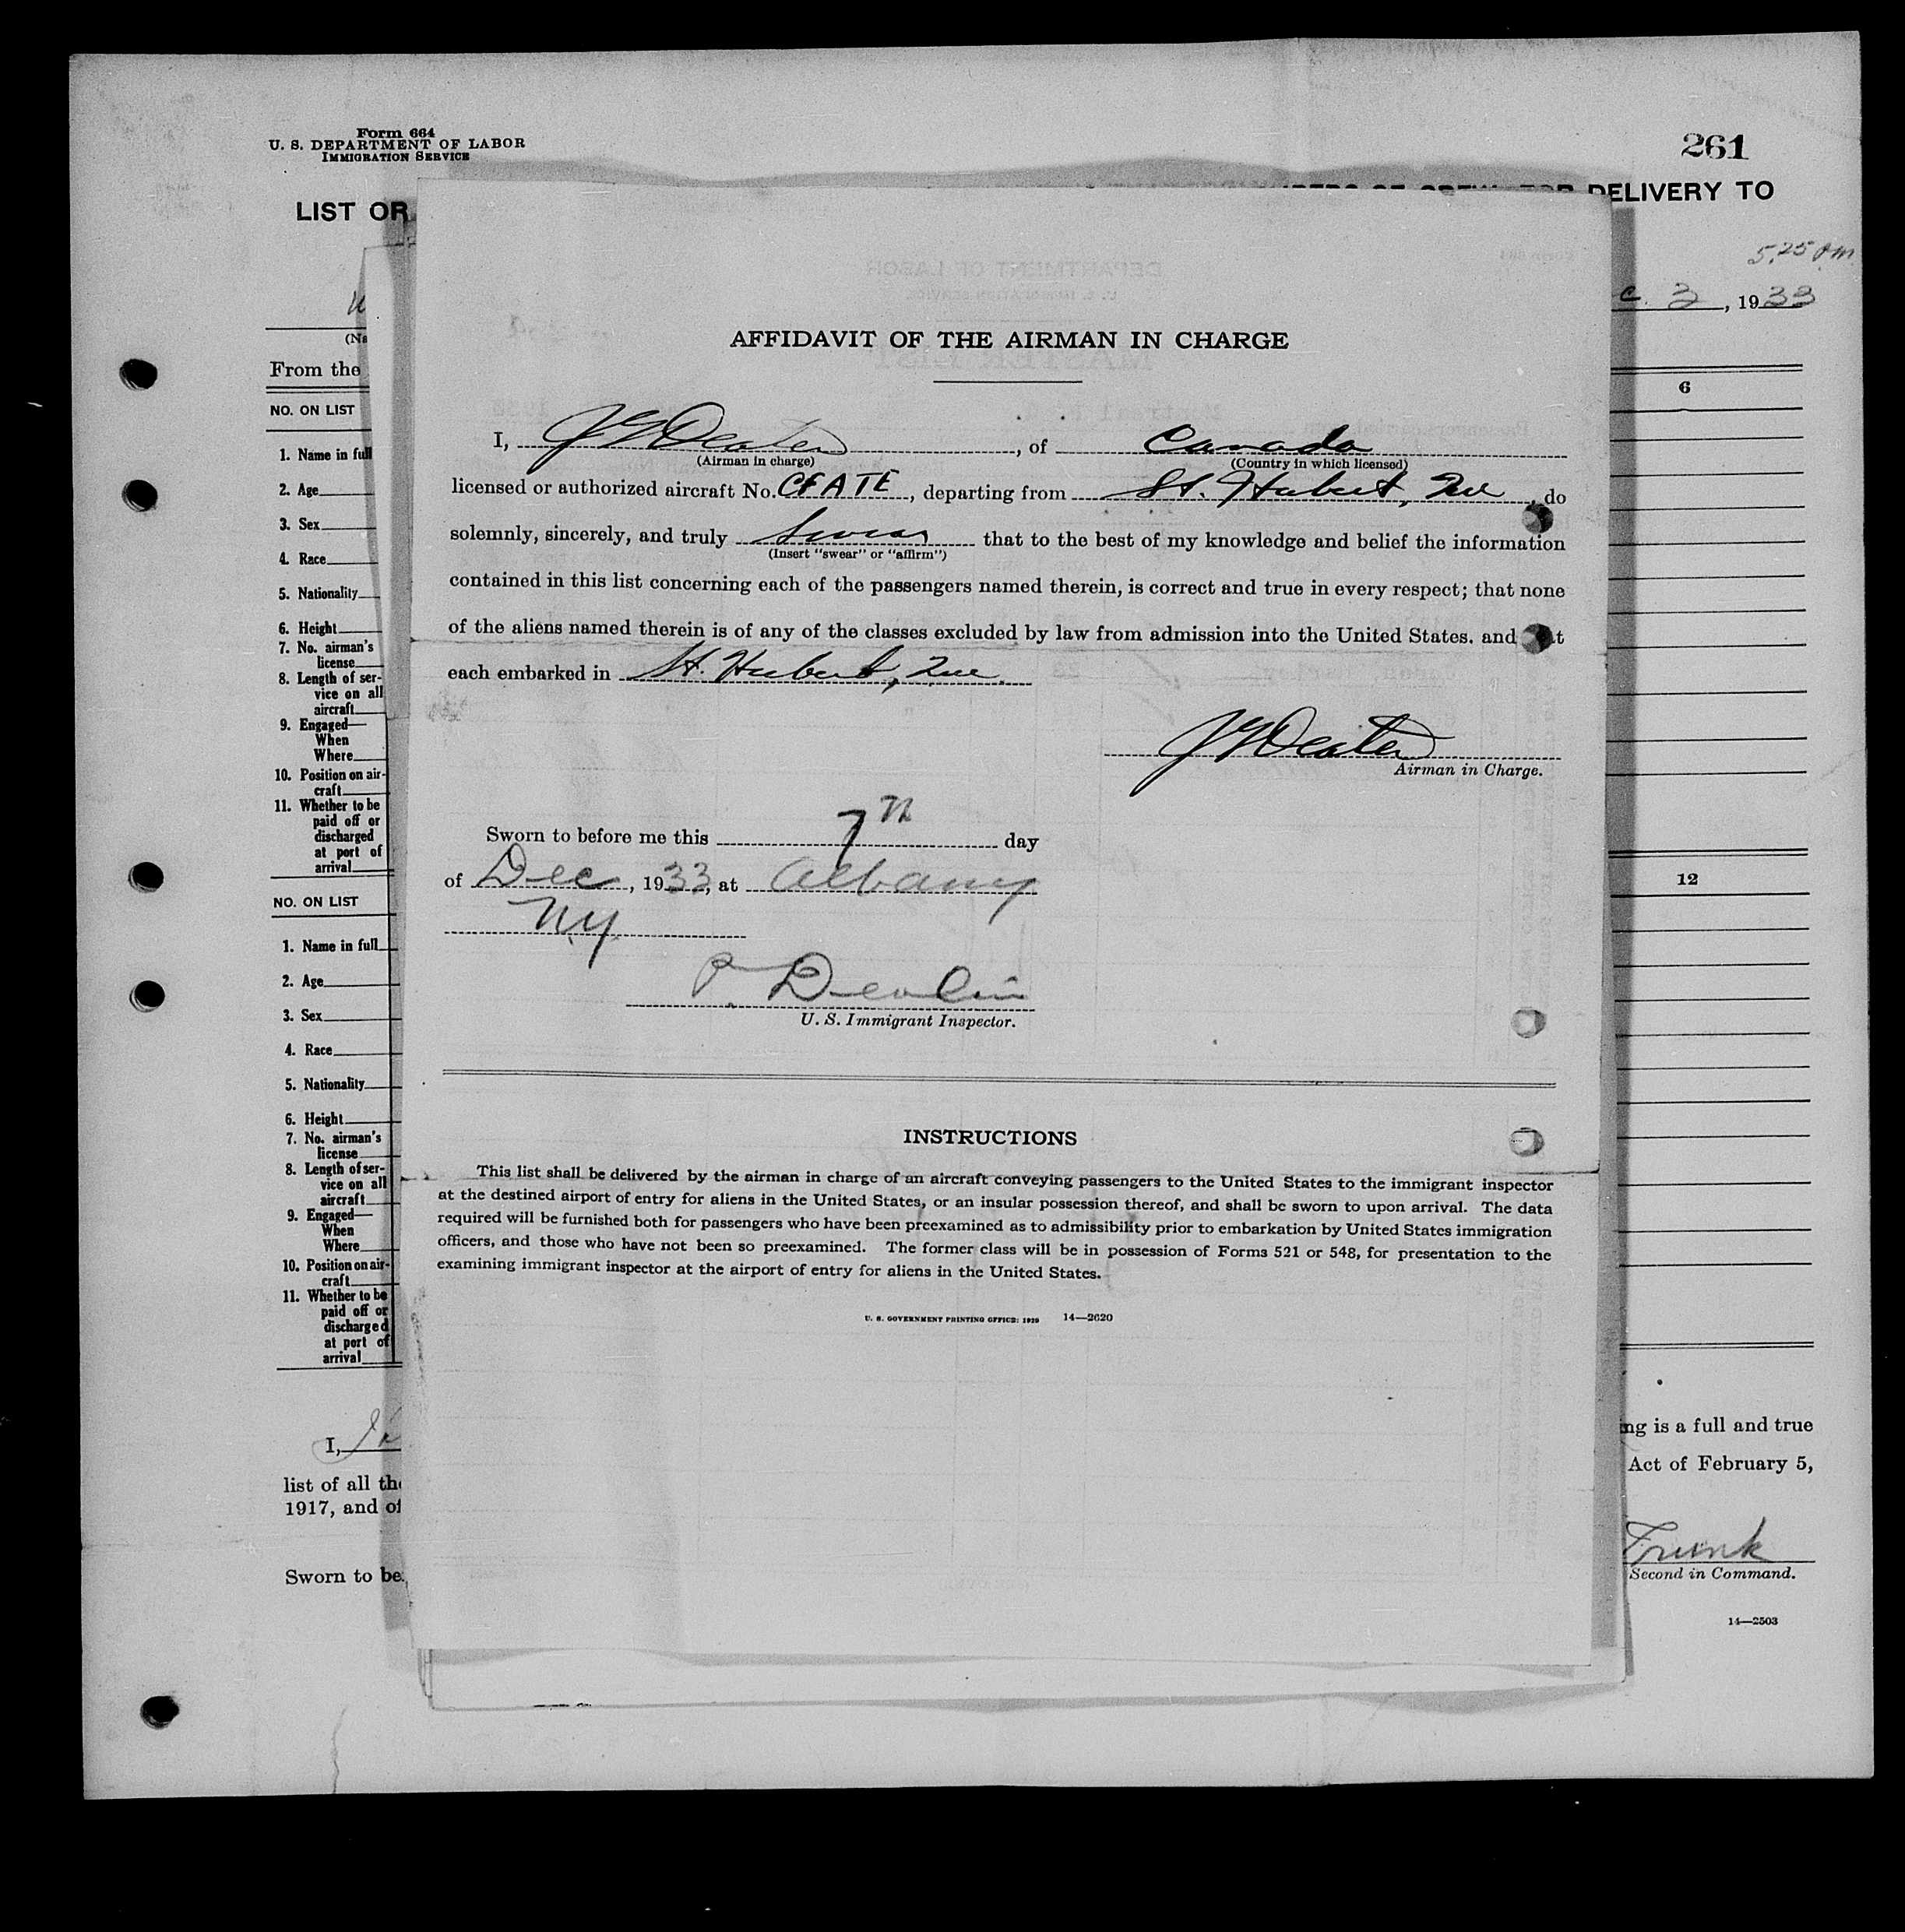 Form 664
U. S. DEPARTMENT OF LABOR
IMMIGRATION SERVICE
261
LIST OR
DELIVERY TO
5.25 pm
3, 1933
(Na
From the
NO. ON LIST
6
1. Name in full
2. Age
3. Sex
4. Race
5. Nationality
6. Height
7. No. airman's
license
8. Length of ser-
vice on all
aircraft
9. Engaged—
When
Where
10. Position on air-
craft
11. Whether to be
paid off or
discharged
at port of
arrival
NO. ON LIST
12
1. Name in full
2. Age
3. Sex
4. Race
5. Nationality
6. Height
7. No. airman's
license
8. Length of ser-
vice on all
aircraft
9. Engaged—
When
Where
10. Position on air-
craft
11. Whether to be
paid off or
discharged
at port of
arrival
I,
ng is a full and true
list of all the
Act of February 5,
1917, and of
Trunk
Sworn to be
Second in Command.
14—2503
AFFIDAVIT OF THE AIRMAN IN CHARGE
I, , of Canada
(Airman in charge) (Country in which licensed)
licensed or authorized aircraft No. CFATE, departing from St. Hubert, Que, do
solemnly, sincerely, and truly swear that to the best of my knowledge and belief the information
(Insert "swear" or "affirm")
contained in this list concerning each of the passengers named therein, is correct and true in every respect; that none
of the aliens named therein is of any of the classes excluded by law from admission into the United States. and t
each embarked in St. Hubert, Que.
Airman in Charge.
Sworn to before me this 7th day
of Dec, 1933, at Albany
NY
P. Devlin
U. S. Immigrant Inspector.
INSTRUCTIONS
This list shall be delivered by the airman in charge of an aircraft conveying passengers to the United States to the immigrant inspector
at the destined airport of entry for aliens in the United States, or an insular possession thereof, and shall be sworn to upon arrival. The data
required will be furnished both for passengers who have been preexamined as to admissibility prior to embarkation by United States immigration
officers, and those who have not been so preexamined. The former class will be in possession of Forms 521 or 548, for presentation to the
examining immigrant inspector at the airport of entry for aliens in the United States.
U. S. GOVERNMENT PRINTING OFFICE: 1929 14—2620